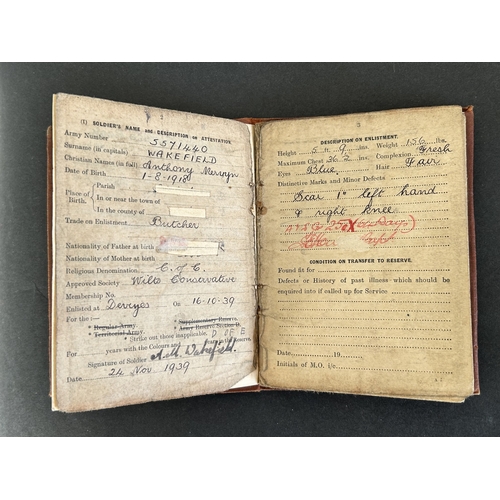 (1) SOLDIER'S NAME and DESCRIPTION on ATTESTATION.
Army Number 5571440
Surname (in capitals) WAKEFIELD
Christian Names (in full) Anthony Mervyn
Date of Birth 1-8-1918
Place of Birth. Parish
In or near the town of
In the county of
Trade on Enlistment Butcher
Nationality of Father at birth
Nationality of Mother at birth
Religious Denomination C. of E.
Approved Society Wilts Conservative
Membership No.
Enlisted at Devizes On 16-10-39
For the :—
Regular Army. Supplementary Reserve.
Territorial Army. Army Reserve Section D.
Strike out those inapplicable. D OF E
For years with the Colours and
Signature of Soldier A.M. Wakefield.
Date 24 Nov 1939
3
DESCRIPTION ON ENLISTMENT.
Height 5 ft. 9 ins. Weight 156 lbs.
Maximum Chest 36½ ins. Complexion Fresh
Eyes Blue Hair Fair
Distinctive Marks and Minor Defects
Scar 1" left hand
& right knee
CONDITION ON TRANSFER TO RESERVE.
Found fit for
Defects or History of past illness which should
be enquired into if called up for Service
Date 19
Initials of M.O. i/c